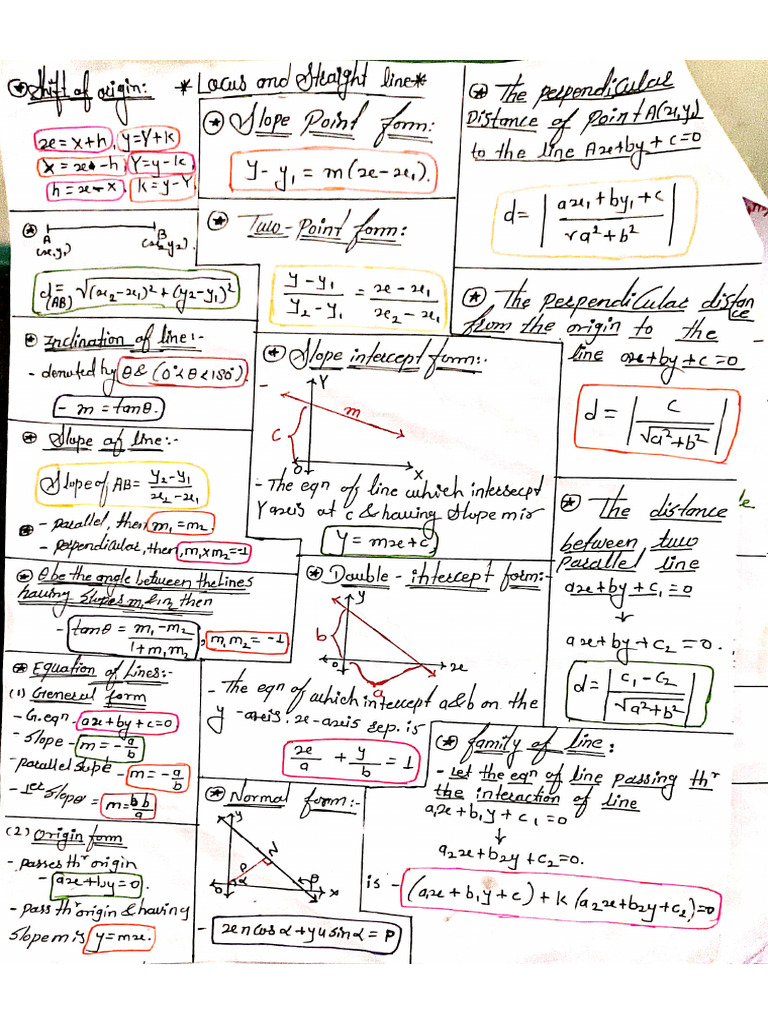 * Locus and Straight line *
* Shift of origin:
x = X+h, y=Y+k
X = x-h, Y=y-k
h = x-X, k=y-Y
*
A
(x,y₁)
B
(x₂y₂).
d(AB) = √(x₂-x₁)²+(y₂-y₁)²
* Inclination of line:-
- denoted by θ & (0°<θ<180°)
- m = tanθ.
* Slope of line:-
Slope of AB= y₂-y₁/x₂-x₁
* - parallel, then m₁=m₂
- perpendicular, then, m₁×m₂=-1
* θ be the angle between the lines
having slopes m₁&m₂ then
- tanθ = m₁-m₂/1+m₁m₂, m₁m₂ = -1
* Equation of Lines:-
(1) General form
- G.eqn - ax+by+c=0
- Slope - m = -a/b
- parallel slope - m = -a/b
- ⊥er slope = m = b/a
(2) Origin form
- passes thr origin
- ax+by=0.
- pass thr origin & having
slope m is y=mx.
* Slope Point form:
y-y₁ = m(x-x₁).
* Two-Point form:
y-y₁/y₂-y₁ = x-x₁/x₂-x₁
* Slope intercept form:-
Y
m
C
O
X
- The eqn of line which intersept
Y axis at c & having slope m is
y = mx+c
* Double-intercept form:-
y
b
o
x
a
- The eqn of which intercept a&b on the
y-axis. x-axis sep. is
x/a + y/b = 1
* Normal form:-
y
N
P
α
O
P
x
- x cosα + y sinα = P
* The perpendicular
Distance of Point A(x,y₁)
to the line Ax+by+c=0
d= |ax₁+by₁+c/√a²+b²|
* The perpendicular distance
from the origin to the
line ax+by+c=0
d = |c/√a²+b²|
* The distance
between two
parallel line
ax+by+c₁=0
↓
ax+by+c₂=0.
d= |c₁-c₂/√a²+b²|
* family of line:
- Let the eqn of line passing thr
the interaction of line
a₁x+b₁y+c₁=0
↓
a₂x+b₂y+c₂=0.
is - (a₁x+b₁y+c)+k(a₂x+b₂y+c₂)=0